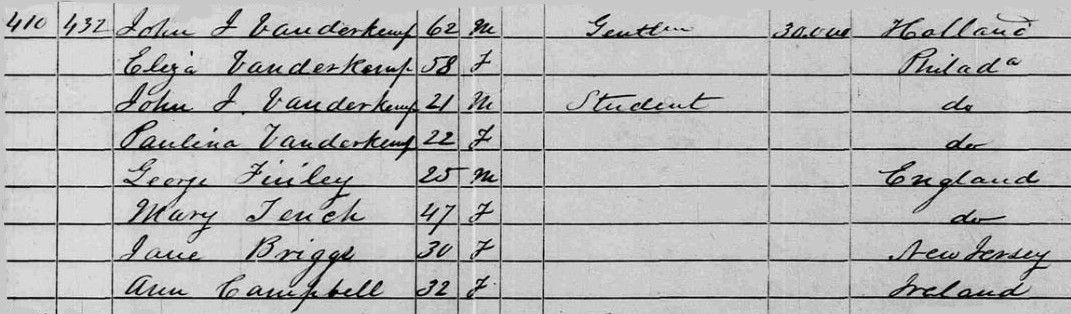 410 432 John J Vanderkemp 62 M Gentlm 30.000 Holland
Eliza Vanderkemp 58 F Philada
John J. Vanderkemp 21 M Student do
Paulina Vanderkemp 22 F do
George Finley 25 M England
Mary Tench 47 F do
Jane Briggs 30 F New Jersey
Ann Campbell 32 F Ireland